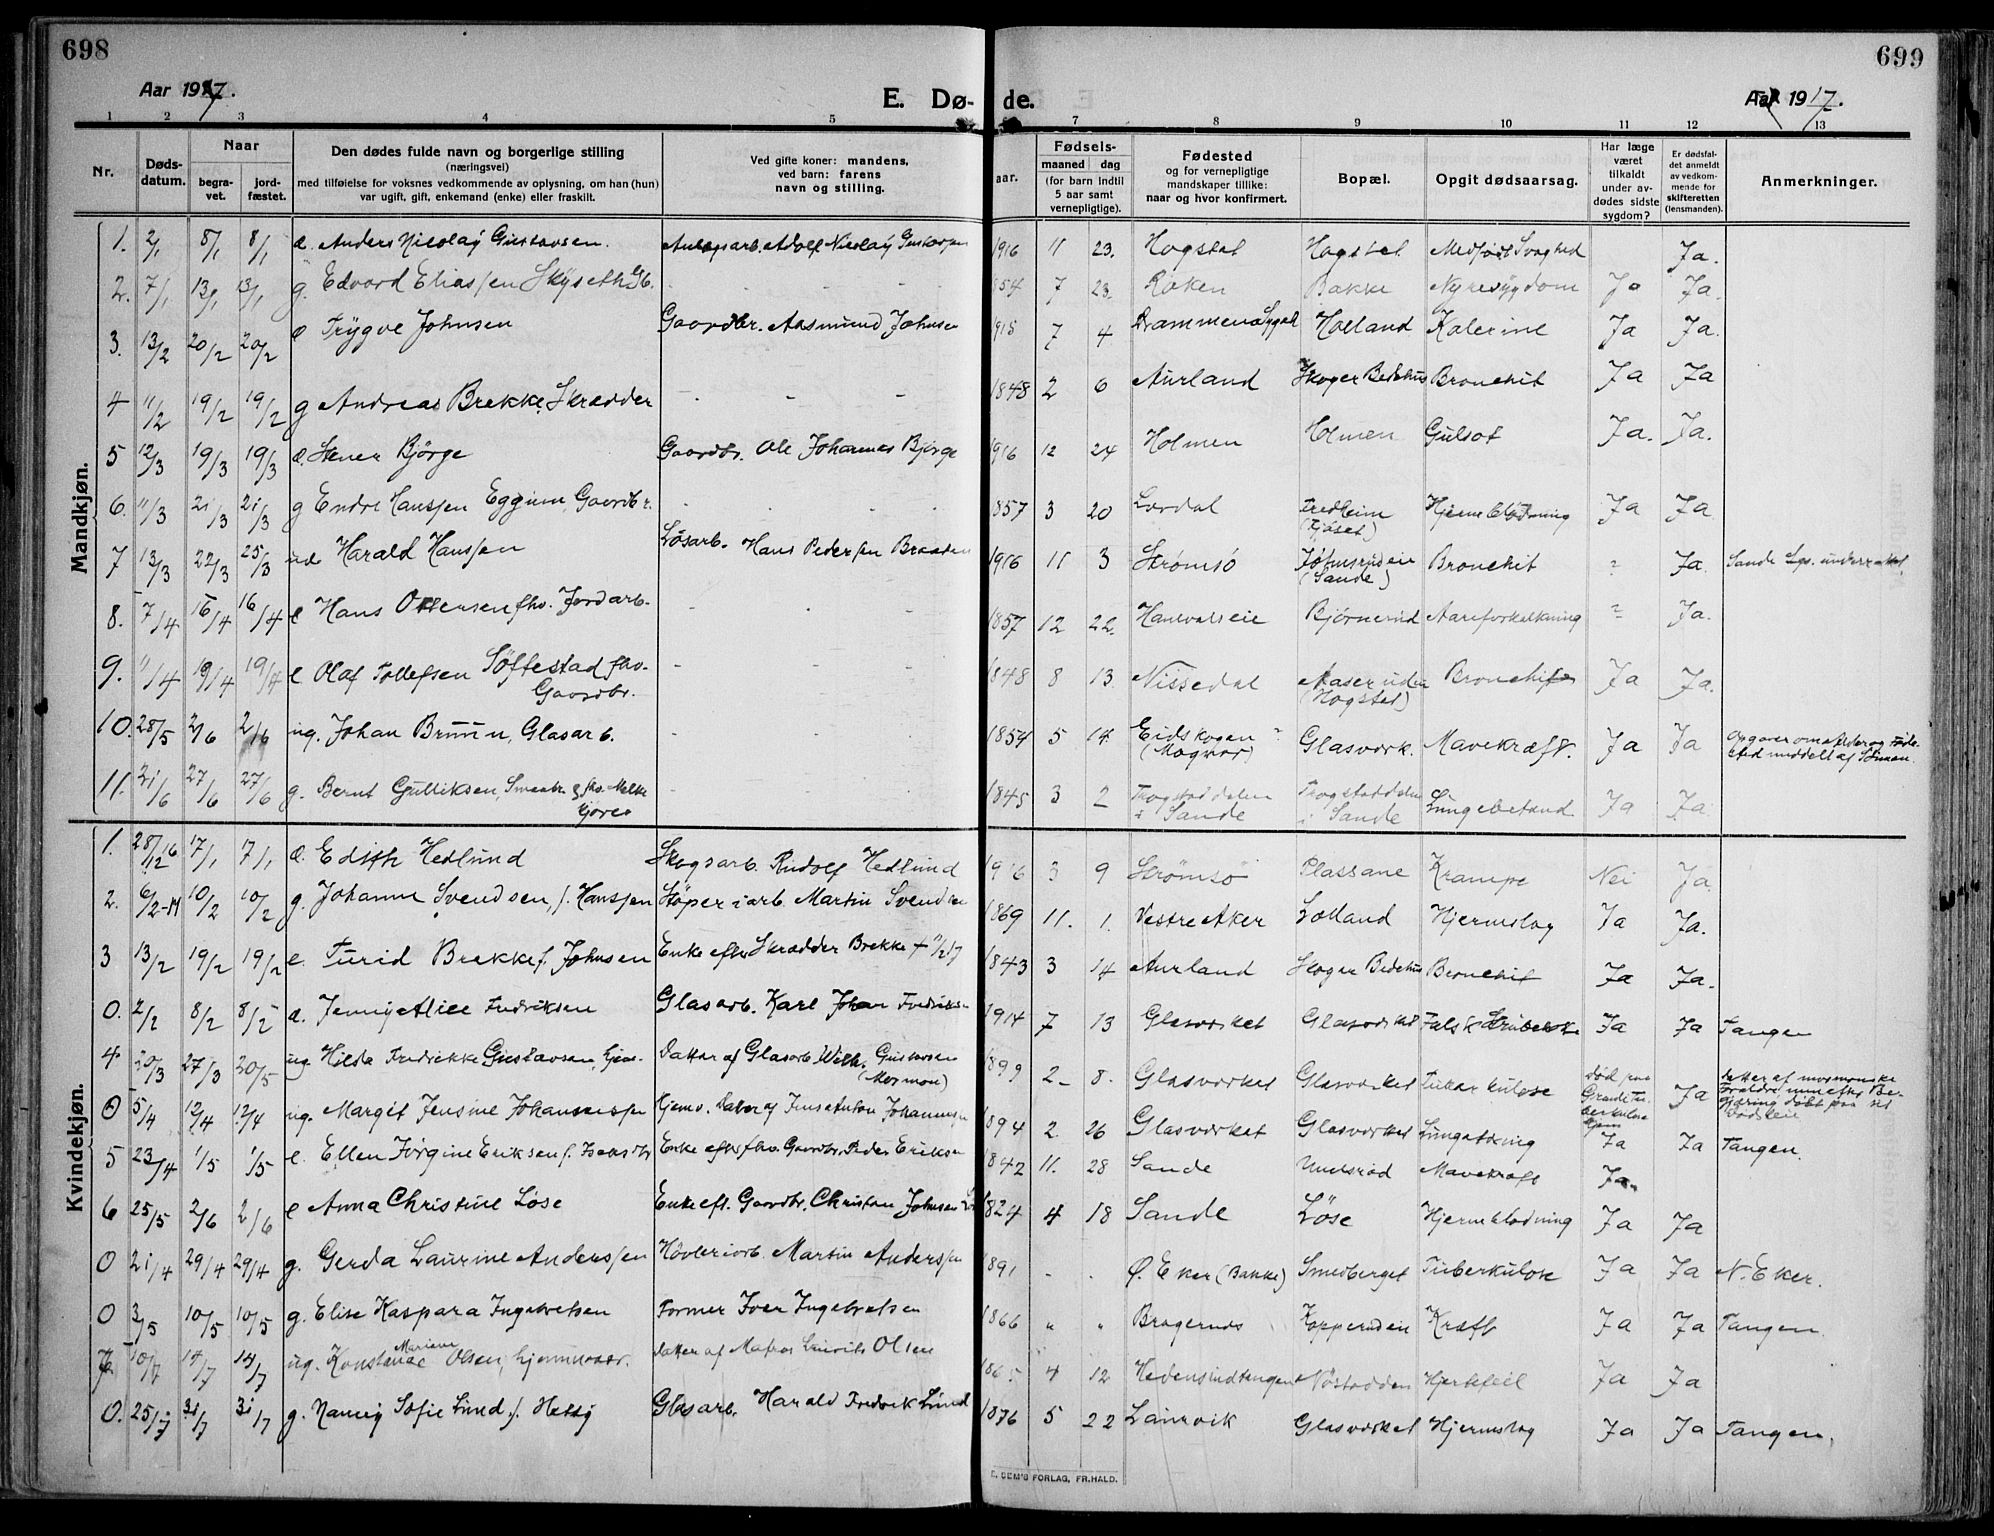 698
699
Aar 1917.
E. Dø-
de.
Aar 1917.
1 2 3 4 5 7 8 9 10 11 12 13
Nr.
Døds-
datum.
Naar
begra-
vet.
jord-
fæstet.
Den dødes fulde navn og borgerlige stilling
(næringsvei)
med tilføielse for voksnes vedkommende av oplysning, om han (hun)
var ugift, gift, enkemand (enke) eller fraskilt.
Ved gifte koner: mandens,
ved barn: farens
navn og stilling.
aar.
Fødsels-
maaned dag
(for barn indtil
5 aar samt
vernepligtige).
Fødested
og for vernepligtige
mandskaper tillike:
naar og hvor konfirmert.
Bopæl.
Opgit dødsaarsag.
Har læge
været
tilkaldt
under av-
dødes sidste
sygdom?
Er dødsfal-
det anmeldt
av vedkom-
mende for
skifteretten
(lensmanden).
Anmerkninger.
Mandkjøn.
1. 2/1 8/1 8/1 Anders Nicolay Gustavsen. Adolf Nicolay Gustavsen 1916 11 23. Hogstet Hogstet Medfødt Svaghed Ja.
2. 7/1 13/1 13/1 g. Edvard Eliassen Skyseth Gb. 1854 7 23. Røken Bakke Nyresygdom Ja Ja.
3. 13/2 20/2 20/2 Trygve Johnsen Gaardbr. Aasmund Johnsen 1915 7 4 Drammens Sygeh Holland Kolerine Ja Ja.
4 11/2 19/2 19/2 g Andreas Brekke, Skrædder 1848 2 6 Aurland Skoger Bedehus Bronchit Ja Ja
5 12/3 19/3 19/3 Stener Bjørge Gaardbr. Ole Johannes Bjørge 1916 12 24 Holmen Holmen Gulsot Ja. Ja.
6. 11/3 21/3 21/3 g Endre Hanssen Eggum, Gaardbr. 1857 3 20 Lærdal Fredheim
Hjerneblødning Ja Ja
7 13/3 22/3 25/3 Harald Hanssen Løsarb. Hans Pedersen Braaten 1916 11 3 Strømsø
(Sande) Bronchit ? Ja. Sande Lgs. underrettet
8. 7/4 16/4 16/4 e Hans Ottersen fhv. Jordarb. 1857 12 22. Hanevolseie Bjørnerud Aareforkalkning ? Ja.
9. 11/4 19/4 19/4 e. Olaf Tollefsen Søftestad fhv.
Gaardbr. 1848 8 13 Nissedal
(Hogstet) Bronchit Ja Ja.
10. 28/5 2/6 2/6 ug. Johan Bruun, Glasarb. 1854 5 14. Eidskogen ?
(Magnor) Glasverk. Mavekræft. Ja Ja
11. 21/6 27/6 27/6 g. Bernt Gulliksen, Smaabr. & fhv. Melke
kjører 1845 3 2
i Sande
i Sande Lungebetænd Ja Ja
Kvindekjøn.
1. 28/12 16 17/1 17/1 Edith Hedlund Skogsarb. Rudolf Hedlund 1916 3 9 Strømsø Plassane Krampe Nei Ja
2. 6/2 10/2 10/2 g. Johanne Svendsen, f. Hanssen Støperiarb. Martin Svendsen 1869 11. 1. Vestre Aker Lolland Hjerneslag Ja Ja.
3 13/2 19/2 19/2 e. Turid Brekke f. Johnsen Enke efter Skrædder Brekke † 11/2 17 1843 3 14 Aurland Skoger Bedehus Bronchit Ja Ja.
0. 2/2 8/2 8/2 Jenny Alice Fredriksen Glasarb. Karl Johan Fredriksen 1914 7 13 Glasverket Glasverket Falsk Strubehoste Ja Ja Tangen
4 20/3 27/3 20/5 ug. Hilda Fredrikke Gustavsen, Datter af Glasarb. Wilh. Gustavsen
(Mormon) 1899 2 8. Glasverket Glasverket Tuberkulose Ja
0 5/4 12/4 12/4 ug. Margit Jensine Johannessen Datter af Jens Anton Johannessen 1894 2 26 Glasverket Glasverket Ja Ja Tangen.
5 23/4 1/5 1/5 e. Ellen Jørgine Eriksen f. Isaksdtr Enke efter fhv. Gaardbr. Peder Eriksen 1842 11. 28 Sande Undsrød Mavekræft Ja
6 25/5 2/6 2/6 e Anna Christine Løse Enke eft. Gaardbr. Christian Johnsen 1824 4 18 Sande Løse Hjerneblødning Ja Ja
0 21/4 29/4 29/4 g. Gerda Laurine Anderssen Høvleriarb. Martin Anderssen 1891 Ø. Eker (Bakke) Smedberget Tuberkulose Ja Ja N. Eker.
0 3/5 10/5 10/5 g. Elise Kaspara Ingebretsen Former Iver Ingebretsen 1866 " " Bragernes Kopperudeie Kræft Ja Ja Tangen.
7 10/7 14/7 14/7 ug. Konstanse Mariane Olsen, Datter af Matros Olsen 1865 4 12 Nøstodden Hjertefeil Ja Ja
0. 25/7 31/7 31/7 g. Nanny Sofie Lund f. Glasarb. Harald Fredrik Lund 1876 5 22 Laurvik Glasverket Hjerneslag Ja Ja Tangen.
E. SEM'S FORLAG, FR.HALD.